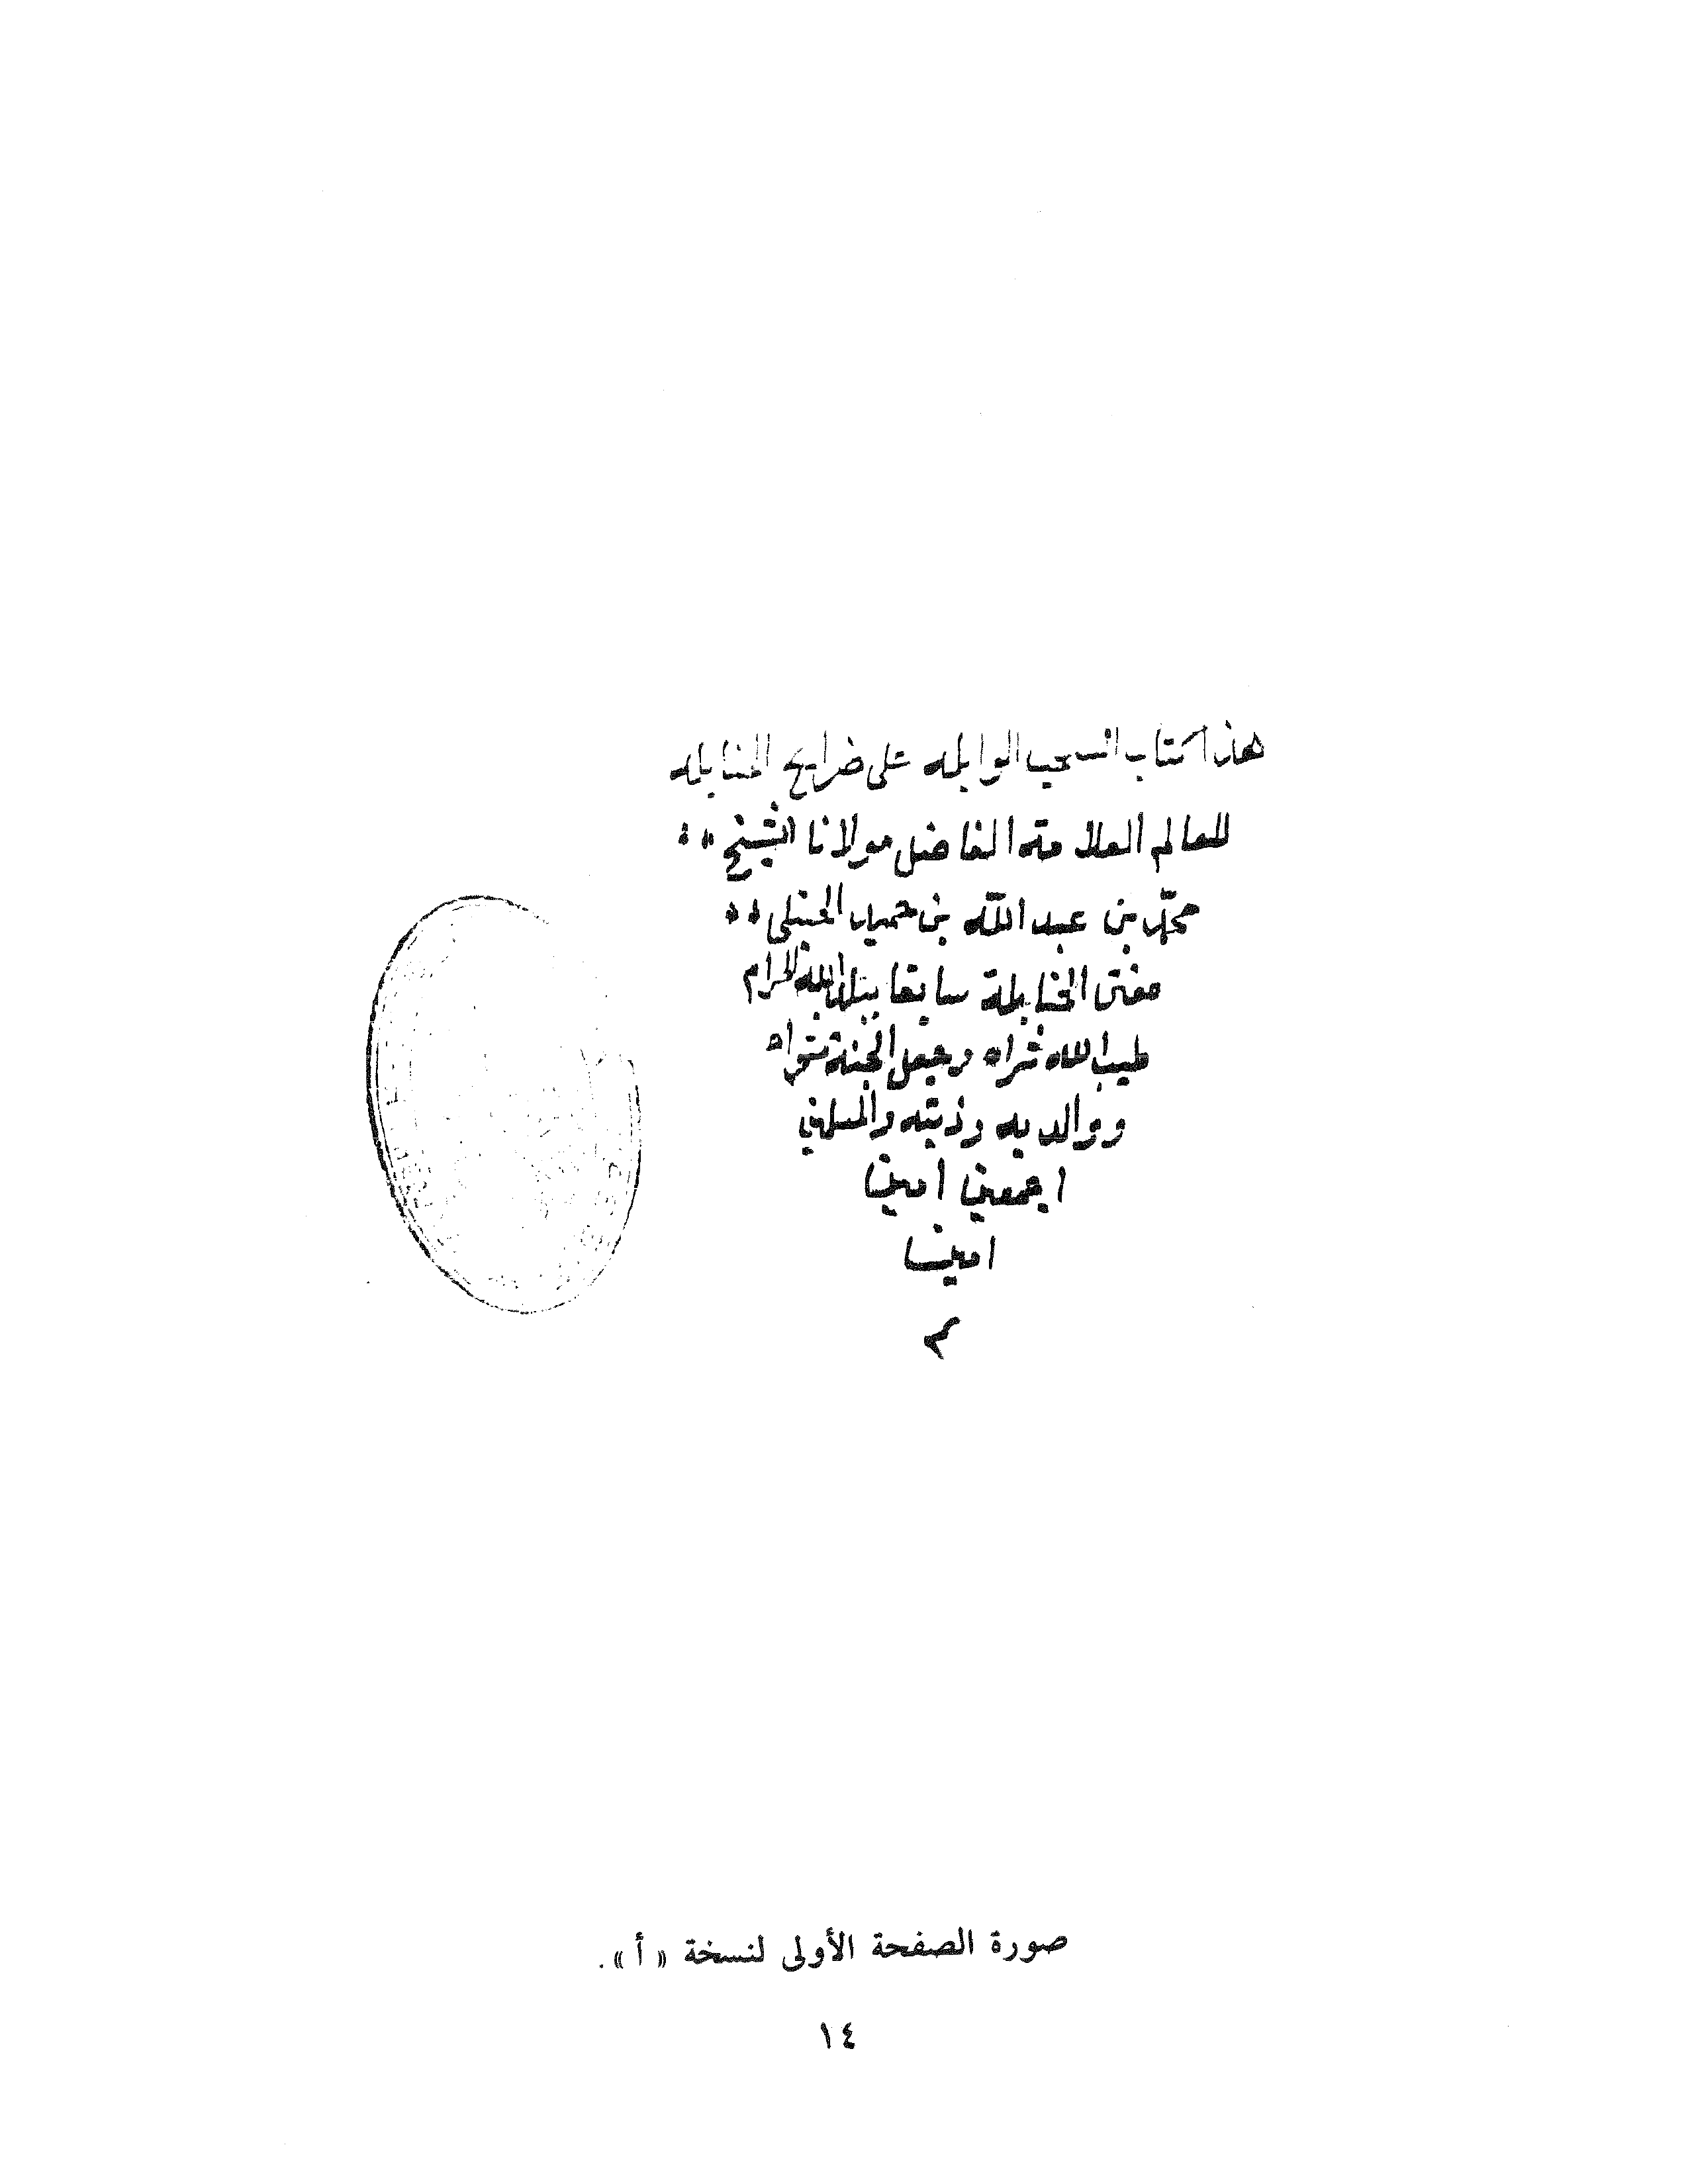 هذا كتاب السحب الوابله على ضرايح الحنابله
للعالم العلامة الفاضل مولانا الشيخ
محمد بن عبد الله بن حميد الحنبلى
مفتى الحنابلة سابقا ببلد الله الحرام
طيب الله ثراه وجعل الجنة مثواه
ووالديه وذريته والمسلمين
اجمعين امين
امين
م
صورة الصفحة الأولى لنسخة «أ».
١٤